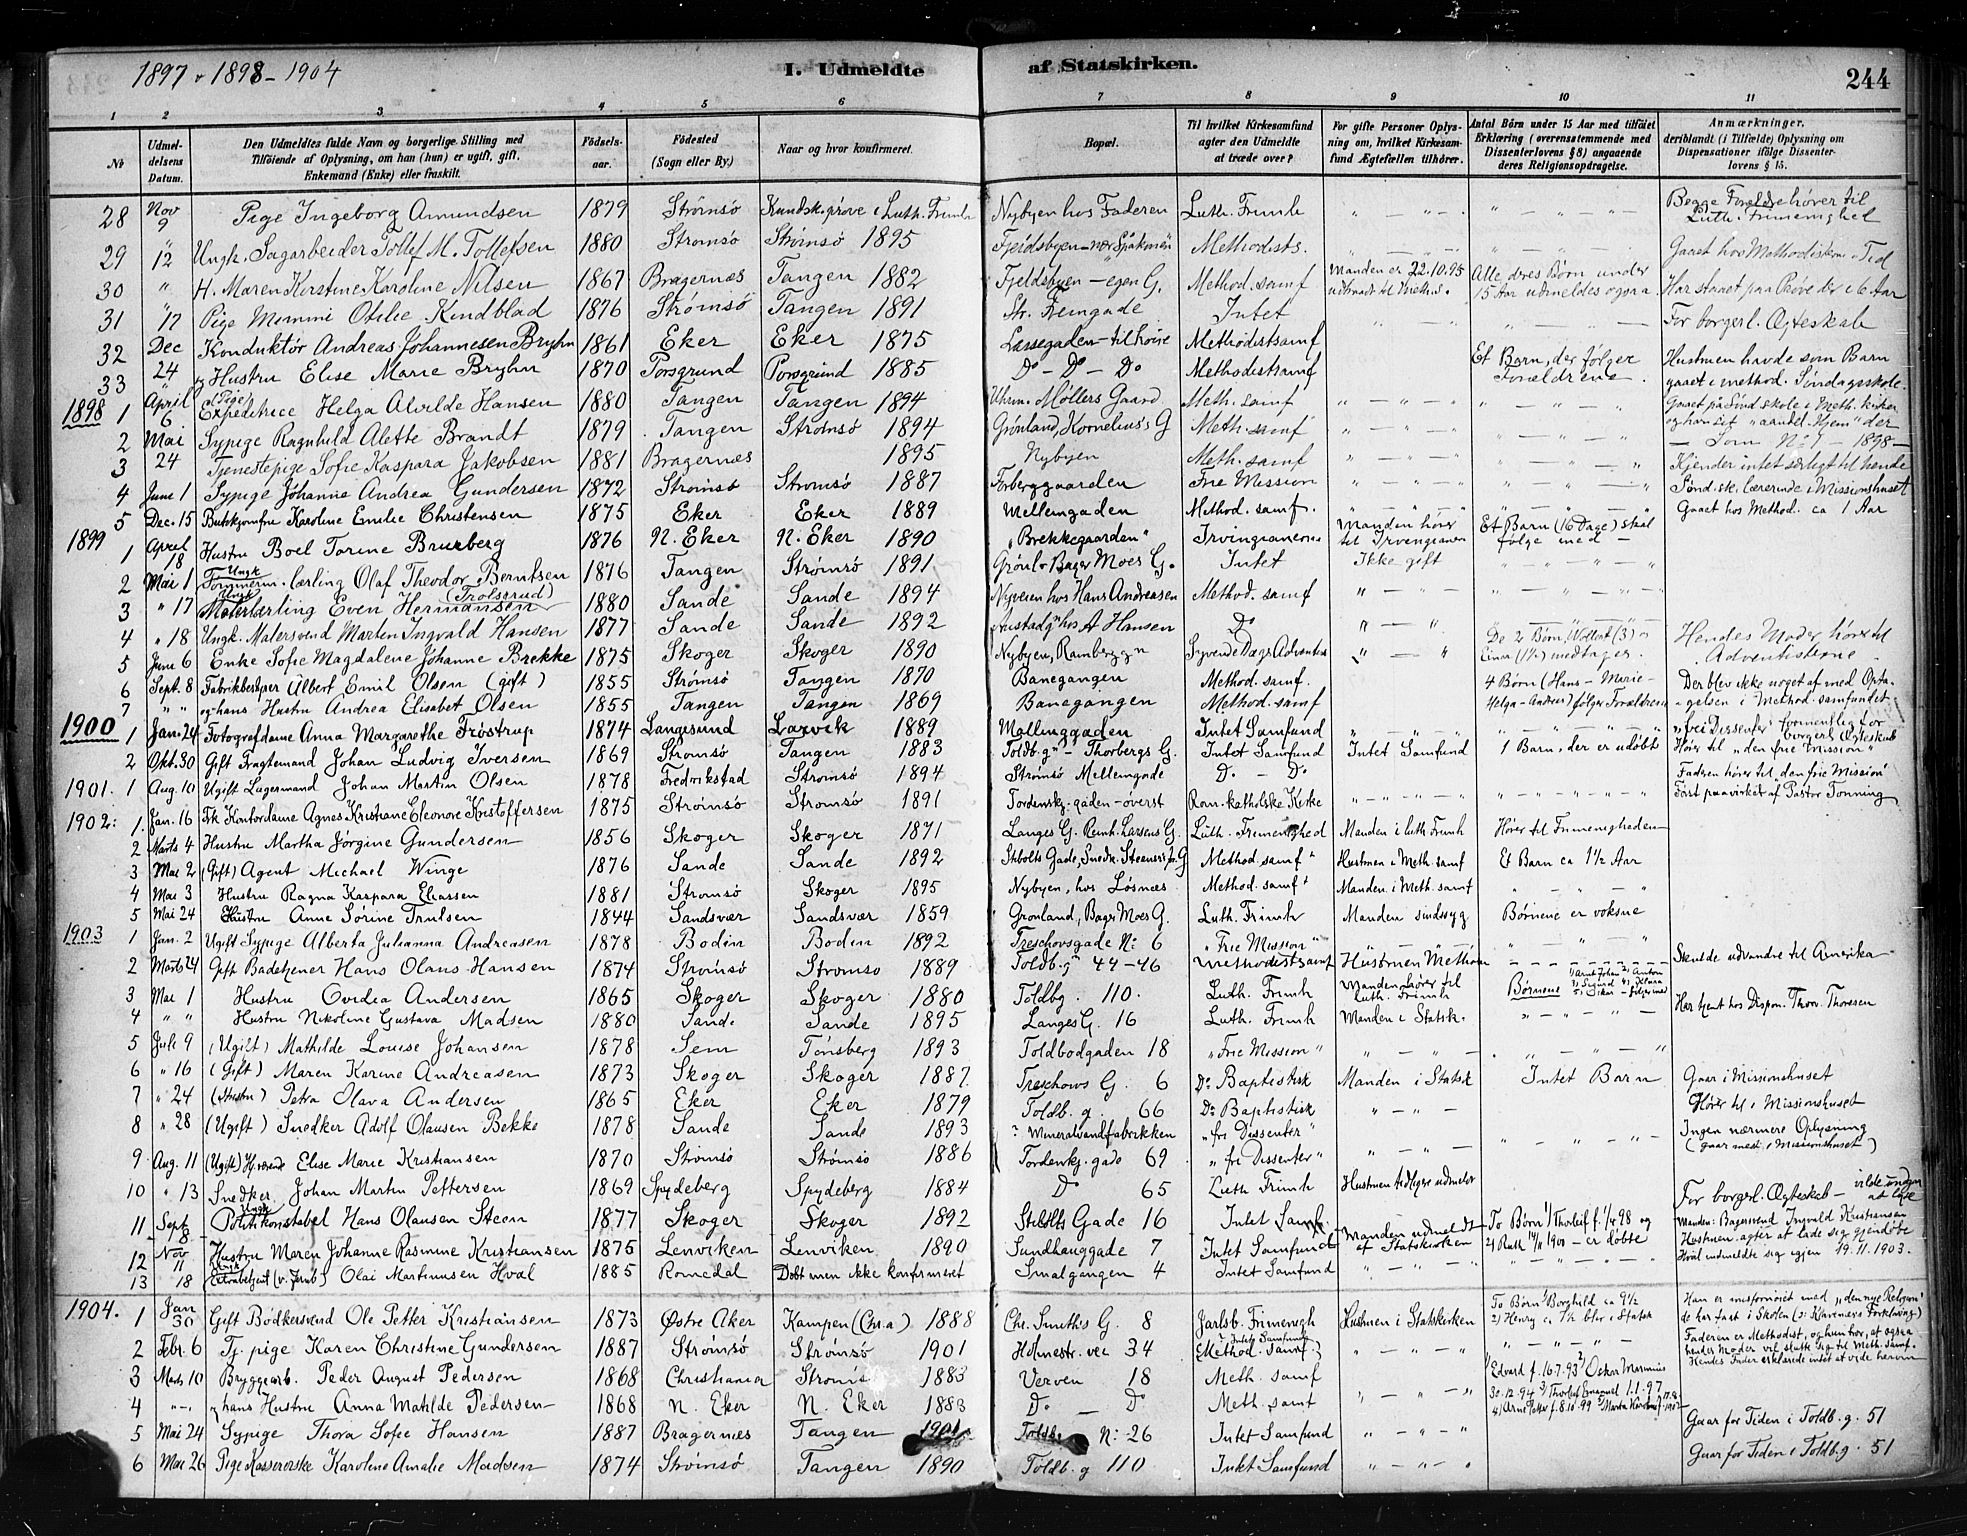 1897 & 1898 - 1904
I. Udmeldte af Statskirken.
244
1 2 3 4 5 6 7 8 9 10 11
No
Udmeldelsens Datum.
Den Udmeldtes fulde Navn og borgerlige Stilling med Tilføiende af Oplysning, om han (hun) er ugift, gift, Enkemand (Enke) eller fraskilt.
Fødselsaar.
Fødested (Sogn eller By.)
Naar og hvor konfirmeret.
Bopæl.
Til hvilket Kirkesamfund agter den Udmeldte at træde over?
For gifte Personer Oplysning om, hvilket Kirkesamfund Ægtefællen tilhører.
Antal Børn under 15 Aar med tilføiet Erklæring (overensstemmende med Dissenterlovens § 8) angaaende deres Religionsopdragelse.
Anmærkninger, deriblandt (i Tilfælde) Oplysning om Dispensationer ifølge Dissenterlovens § 15.
28 Nov 9 Pige Ingeborg Amundsen 1879 Strømsø Kundsk.prøve i Luth. Frimh Nybyen hos Faderen Luth. Frimh " — " — " " — " — " Begge Forældre hører til Luth. Frimenighet
29 " 12 Ungk. Sagarbeider Tollef M. Tollefsen 1880 Strømsø Strømsø 1895 Methodists. Gaaet hos Methodisterne
30 " " H. Maren Kirstine Karoline Nilsen 1867 Bragernæs Tangen 1882 Fjeldsbyen - egen G. Method. samf Manden er 22.10.95 udtraadt til Method. Alle deres Børn under 15 Aar udmeldes ogsaa Har staaet paa Prøve der i 6 Aar
31 " 17 Pige Mimmi Otilie Kindblad 1876 Strømsø Tangen 1891 Intet For borgerl. Ægteskab
32 Dec Konduktør Andreas Johannesen Bryhn 1861 Eker Eker 1875 Methodistsamf Et Barn, der følger Forældrene. Hustruen havde som Barn
33 24 Hustru Elise Marie Bryhn 1870 Porsgrund Porsgrund 1885 Do - Do - Do Methodistsamf gaaet i method. Søndagsskole.
1898 1 April 6 Pige Expeditrice Helga Alvilde Hansen 1880 Tangen Tangen 1894 Uhrm. Møllers Gaard Meth. samf Gaaet på Sønd skole i Meth. kirken
2 Mai Sypige Ragnhild Alette Brandt 1879 Tangen Strømsø 1894 Grønland, Kornelius's G Meth. samf og har sit "aandel. Hjem" der
3 24 Tjenestepige Sofie Kaspara Jakobsen 1881 Bragernæs 1895 Nybyen Meth. samf — Som No 1 - 1898 — Kjender intet særligt til hende
4 June 1 Sypige Johanne Andrea Gundersen 1872 Strømsø Strømsø 1887 Forberggaarden Frie Mission Sønd.sk. lærerinde i Missionshuset
5 Dec. 15 Butikjomfru Karoline Emilie Christensen 1875 Eker Eker 1889 Mellemgaden Method. samf. Gaaet hos Method. ca 1 Aar
1899 1 April 18 Hustru Boel Torine Brurberg 1876 N. Eker N. Eker 1890 "Brekkegaarden" Irvingianerne Manden hører til Irvingianerne Et Barn (16 Dage) skal følge med —
2 Mai 1 Ungk Tømmerm. lærling Olaf Theodor Berntsen 1876 Tangen Strømsø 1891 Grønl. Bager Moes G. Intet Ikke gift
3 " 17 Ungk Malerlærling Even Hermansen (Trolsrud) 1880 Sande Sande 1894 Nyveien hos Hans Andreasen Method. samf
4 " 18 Ungk. Malersvend Marten Ingvald Hansen 1877 Sande Sande 1892 hos A Hansen Do
5 June 6 Enke Sofie Magdalene Johanne Brekke 1875 Skoger Skoger 1890 Nybyen, Ramberg gn Syvende Dags Adventist De 2 Børn, Vollert (3) og Einar (1½) medtages. Hendes Moder hører til Adventisterne
6 Sept. 8 Fabrikbestyrer Albert Emil Olsen (gift) 1855 Strømsø Tangen 1870 Banegangen Method. samf. 4 Børn (Hans - Marie - Der blev ikke noget af med Opta-
7 " " og hans Hustru Andrea Elisabet Olsen 1855 Tangen Tangen 1869 Banegangen Method. samf Helga - Andreas) følger Forældrene gelsen i Method. samfundet
1900 1 Jan. 24 Fotografdame Anna Margarethe Frøstrup 1874 Langesund Larvik 1889 Mellemgaden Intet Samfund "fri Dissenter" formentlig for borgerl Ægteskab
2 Okt. 30 Gift Fragtemand Johan Ludvig Iversen 1869 Strømsø Tangen 1883 Toldb.g - Thorbergs G. Intet Samfund Intet Samfund 1 Barn, der er udøbt Hører til "den frie Mission"
1901. 1 Aug. 10 Ugift Lagermand Johan Martin Olsen 1878 Fredrikstad Strømsø 1894 Strømsø Mellemgade Do - Do Faderen hører til "den frie Mission"
1902: 1. Jan. 16 Frk Kontordame Agnes Kristiane Eleonore Kristoffersen 1875 Strømsø Strømsø 1891 Tordenskj.gaden - øverst Rom. katholske Kirke Først paavirket af Pastor Tonning
2 Marts 4 Hustru Martha Jørgine Gundersen 1856 Skoger Skoger 1871 Langes G. Reinh. Larsens G. Luth. Frimenighed Manden i luth Frimh Hører til Frimenigheden
3 Mai 2 (Gift) Agent Michael Winge 1876 Sande Sande 1892 Method. samf Hustruen i Meth. samf Et Barn ca 1½ Aar
4 Mai 3 Hustru Ragna Kaspara Eliassen 1881 Strømsø Skoger 1895 Nybyen, hos Løsnæs Method. samf Manden i Meth. samf
5 Mai 24 Hustru Anne Sørine Trulsen 1844 Sandsvær Sandsvær 1859 Grønland, Bager Moes G. Luth. Frimh Manden sindssyg Børnene er voksne
1903 1 Jan. 2 Ugift Sypige Alberta Julianna Andreasen 1878 Bodin Bodin 1892 Treschowsgade No 6 "Frie Mission"
2 Marts 24 Gift Badetjener Hans Olaus Hansen 1874 Strømsø Strømsø 1889 Toldb.g 44-46 Methodistsamf Hustruen Methodist Skulde udvandre til Amerika
3 Mai 1 Hustru Ovidia Andersen 1865 Skoger Skoger 1880 Toldbg. 110. Luth. Frimh Manden hører til Luth. Frimh Børnene
4 " " Hustru Nikoline Gustava Madsen 1880 Sande Sande 1895 Langes G. 16 Luth. Frimh Manden i Statsk. Har tjent hos Dispon. Thorv. Thoresen
5 Juli 9 (Ugift) Mathilde Louise Johansen 1878 Sem Tønsberg 1893 Toldbodgaden 18 "Frie Mission"
6 " 16 (Gift) Maren Karine Andreasen 1873 Skoger Skoger 1887 Treschows G. 6 Do Baptistisk Manden i Statsk Intet Barn Gaar i Missionshuset
7 " 24 (Hustru) Petra Olava Andersen 1865 Eker Eker 1879 Toldb. g. 66 Do Baptistisk Hører til i Missionshuset
8 " 28 (Ugift) Snedker Adolf Olausen Bekke 1878 Sande Sande 1893 Mineralvandfabrikken "fri Dissenter" Ingen nærmere Oplysning (gaar mest i Missionshuset)
9 Aug. 11 (Ugift) Elise Marie Kristiansen 1870 Strømsø Strømsø 1886 Tordenkj. gade 69 "fri Dissenter"
10 " 13 Snedker Johan Martin Pettersen 1869 Spydeberg Spydeberg 1884 Do 65 Luth Frimh Hustruen tidligere udmeldt
11 Sept 8 Ungk Politikonstabel Hans Olausen Steen 1877 Skoger Skoger 1892 Stibolts Gade 16 Intet Samf. For borgerl. Ægteskab -
12 Nov 11 Hustru Maren Johanne Rasmine Kristiansen 1875 Lenviken Lenviken 1890 Sundhauggade 7 Intet Samfund Manden udmeldt af Statskirken To Børn 1/ Thorleif f. 1/4 98 og 2/ Ruth 1900 - er døbte Manden: Bagersvend Ingvald Kristiansen Hustruen agter at lade sig gjendøbe
13 18 Olai Martinusen Hval 1885 Romedal Døbt men ikke konfirmeret Smalgangen 4 Intet Samfund Hval indmeldte sig igjen 19.11.1903.
1904. 1 Jan 30 Gift Bødkersvend Ole Petter Kristiansen 1873 Østre Aker Kampen (Chr.a) 1888 Chr. Smiths G. 8 Jarlsb. Frimenigh Hustruen i Statskirken To Børn 1/ Borghild ca 9½ 2/ Henry blir i Statsk Han er misfornøiet med "den nye Religion" de har faat i Skolen (o: Klaveness Forklaring)
2 Febr. 6 Tj. pige Karen Christine Gundersen 1887 Strømsø Strømsø 1901 Holmestr. vei 34 Intet Samfund (Method. samf.) Faderen er Methodist, og hun tror, at ogsaa hendes Moder vil slutte sig til Meth. samf.
3 Marts 10 Bryggearb. Peder August Pedersen 1868 Christiania Strømsø 1883 Verven 18 Meth. samf 1/ Edvard f. 16.7.93 2/ Oskar Marinius
4 " - " & hans Hustru Anna Matilde Pedersen 1868 N. Eker N. Eker 1883 Do — Do Meth. samf 30.12.94 3/ Thorleif Emanuel 1.1.97 4/ Arne Petter f. 8.10.99
5 Mai 24 Sypige Thora Sofie Hansen 1887 Bragernæs Tangen 1901 Toldbg. No 26 Intet Samfund Gaar for Tiden i Toldb. g. 51
6 Mai 26 Pige Kassererske Karoline Amalie Madsen 1874 Strømsø Tangen 1890 Toldb. g 110 Intet Samfund Gaar for Tiden i Toldb. g. 51